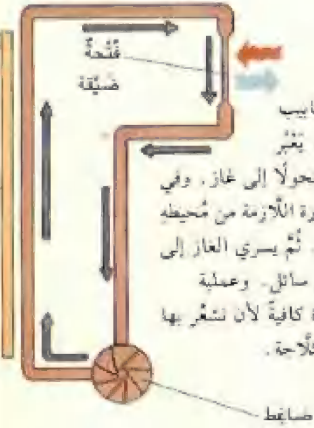 فُتْحةٌ
ضَيِّقة
ـابيب
يَعْبُر
ـتحولًا إلى غاز. وفي
ـرة اللَّازمة من مُحيطه
. ثُمَّ يسري الغاز إلى
سائل. وعملية
ة كافيةً لأن نشعُر بها
ـلَّاجة.
ضاغط